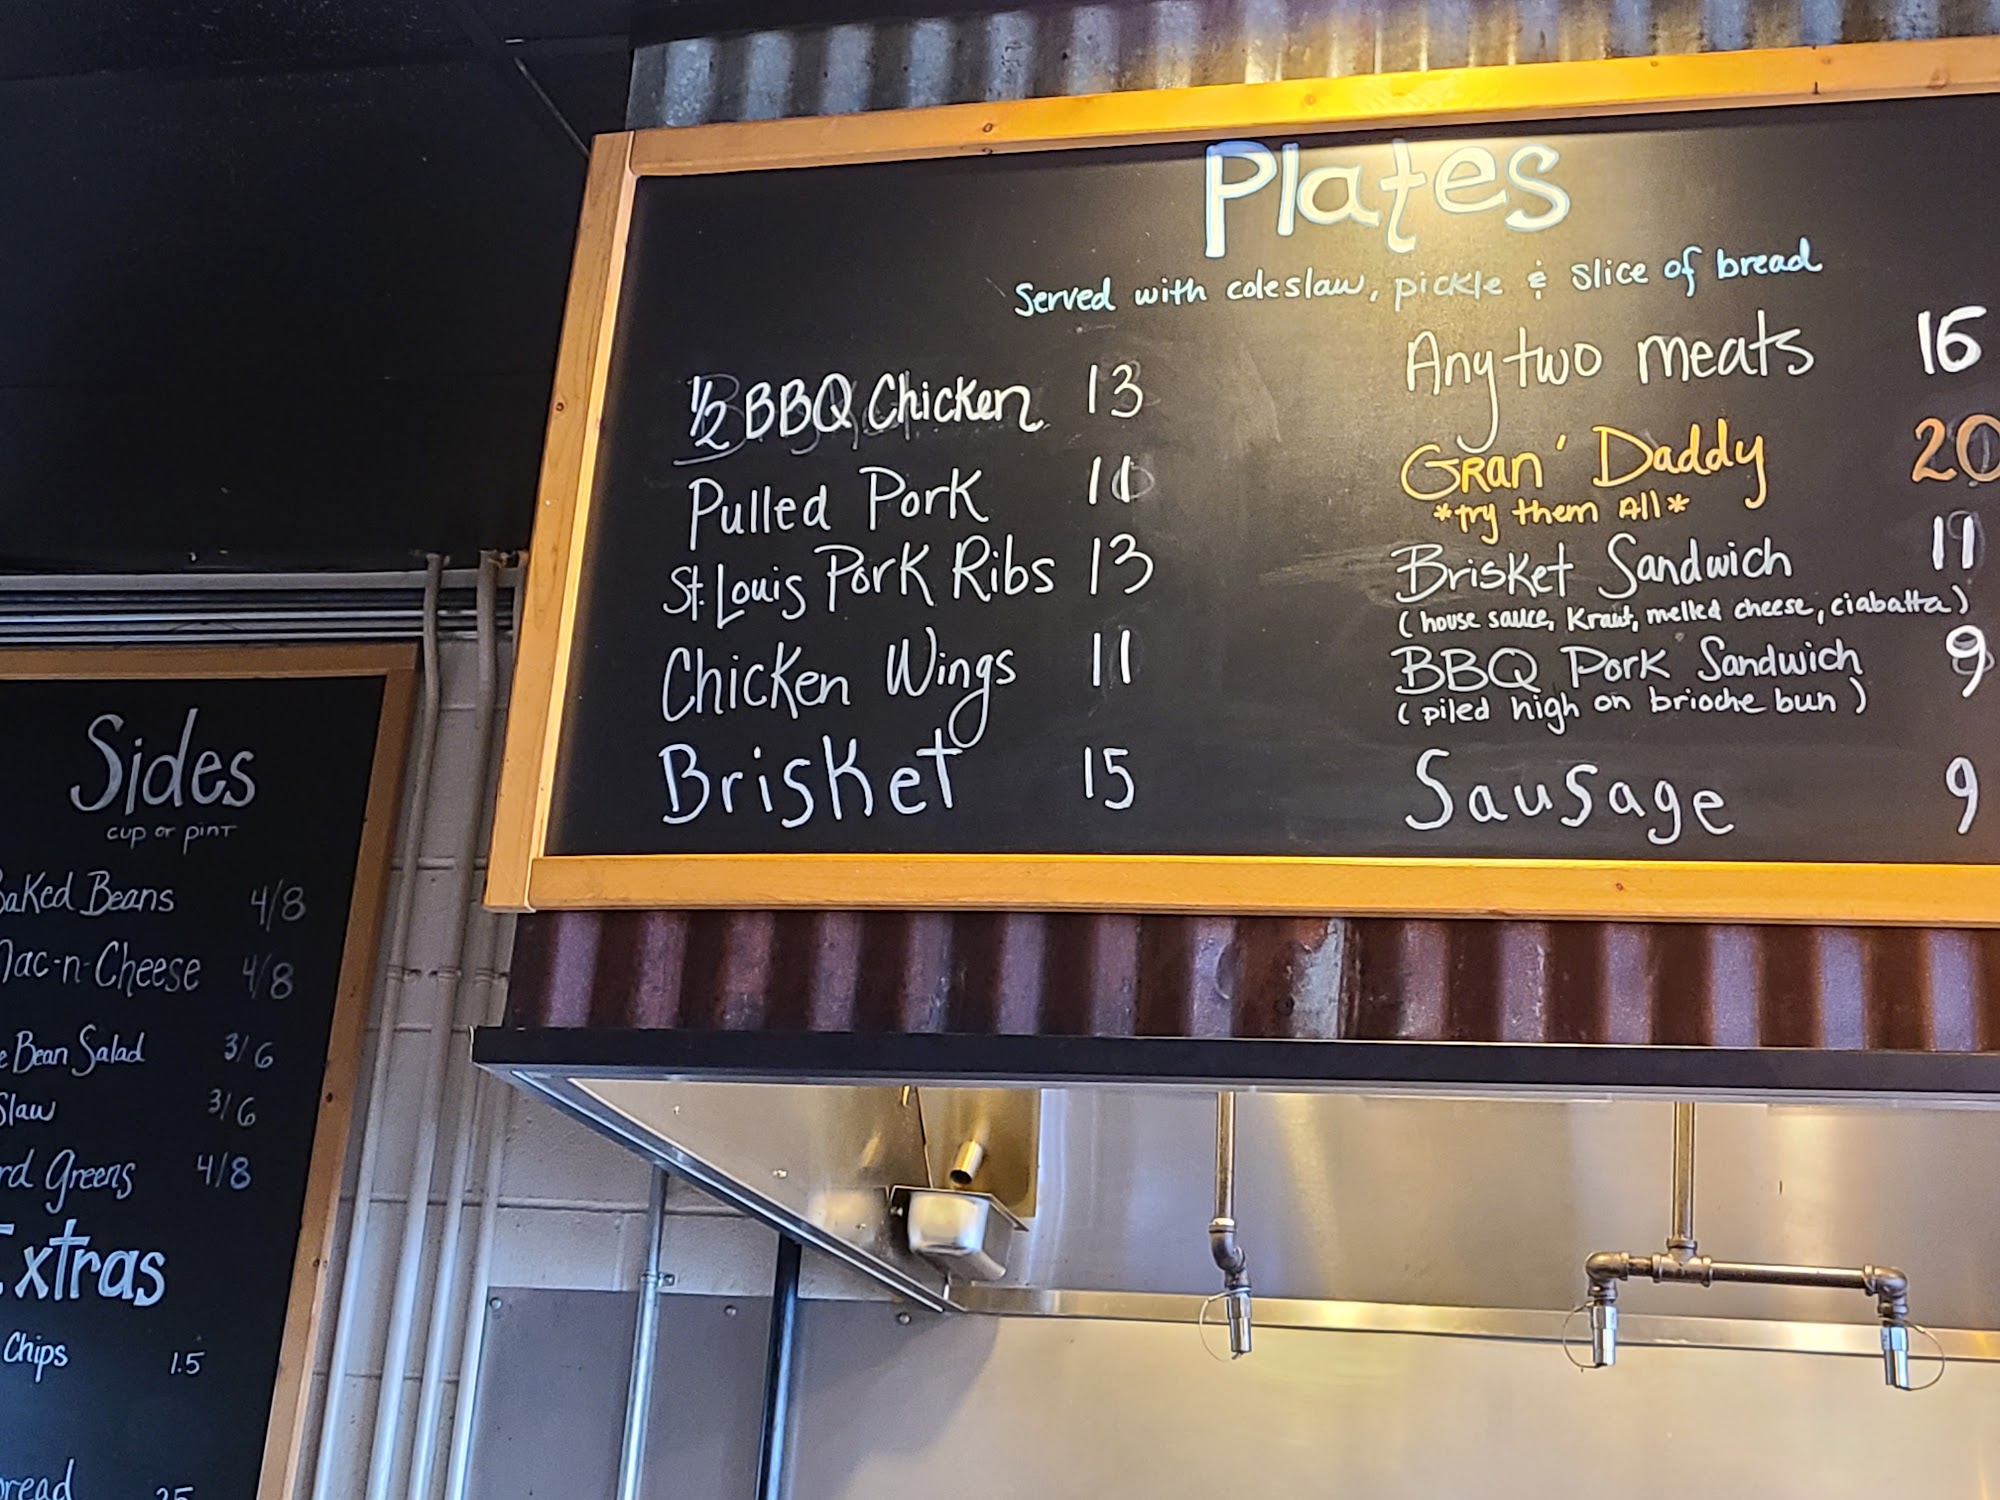 Plates
Served with coleslaw, pickle & slice of bread
1/2 BBQ Chicken 13
Pulled Pork 11
St. Louis Pork Ribs 13
Chicken Wings 11
Brisket 15
Any two meats 16
Gran' Daddy 20
*try them All*
Brisket Sandwich 11
(house sauce, Kraut, melted cheese, ciabatta)
BBQ Pork Sandwich 9
(piled high on brioche bun)
Sausage 9
Sides
cup or pint
Baked Beans 4/8
Mac-n-Cheese 4/8
Bean Salad 3/6
Slaw 3/6
Greens 4/8
Extras
Chips 1.5